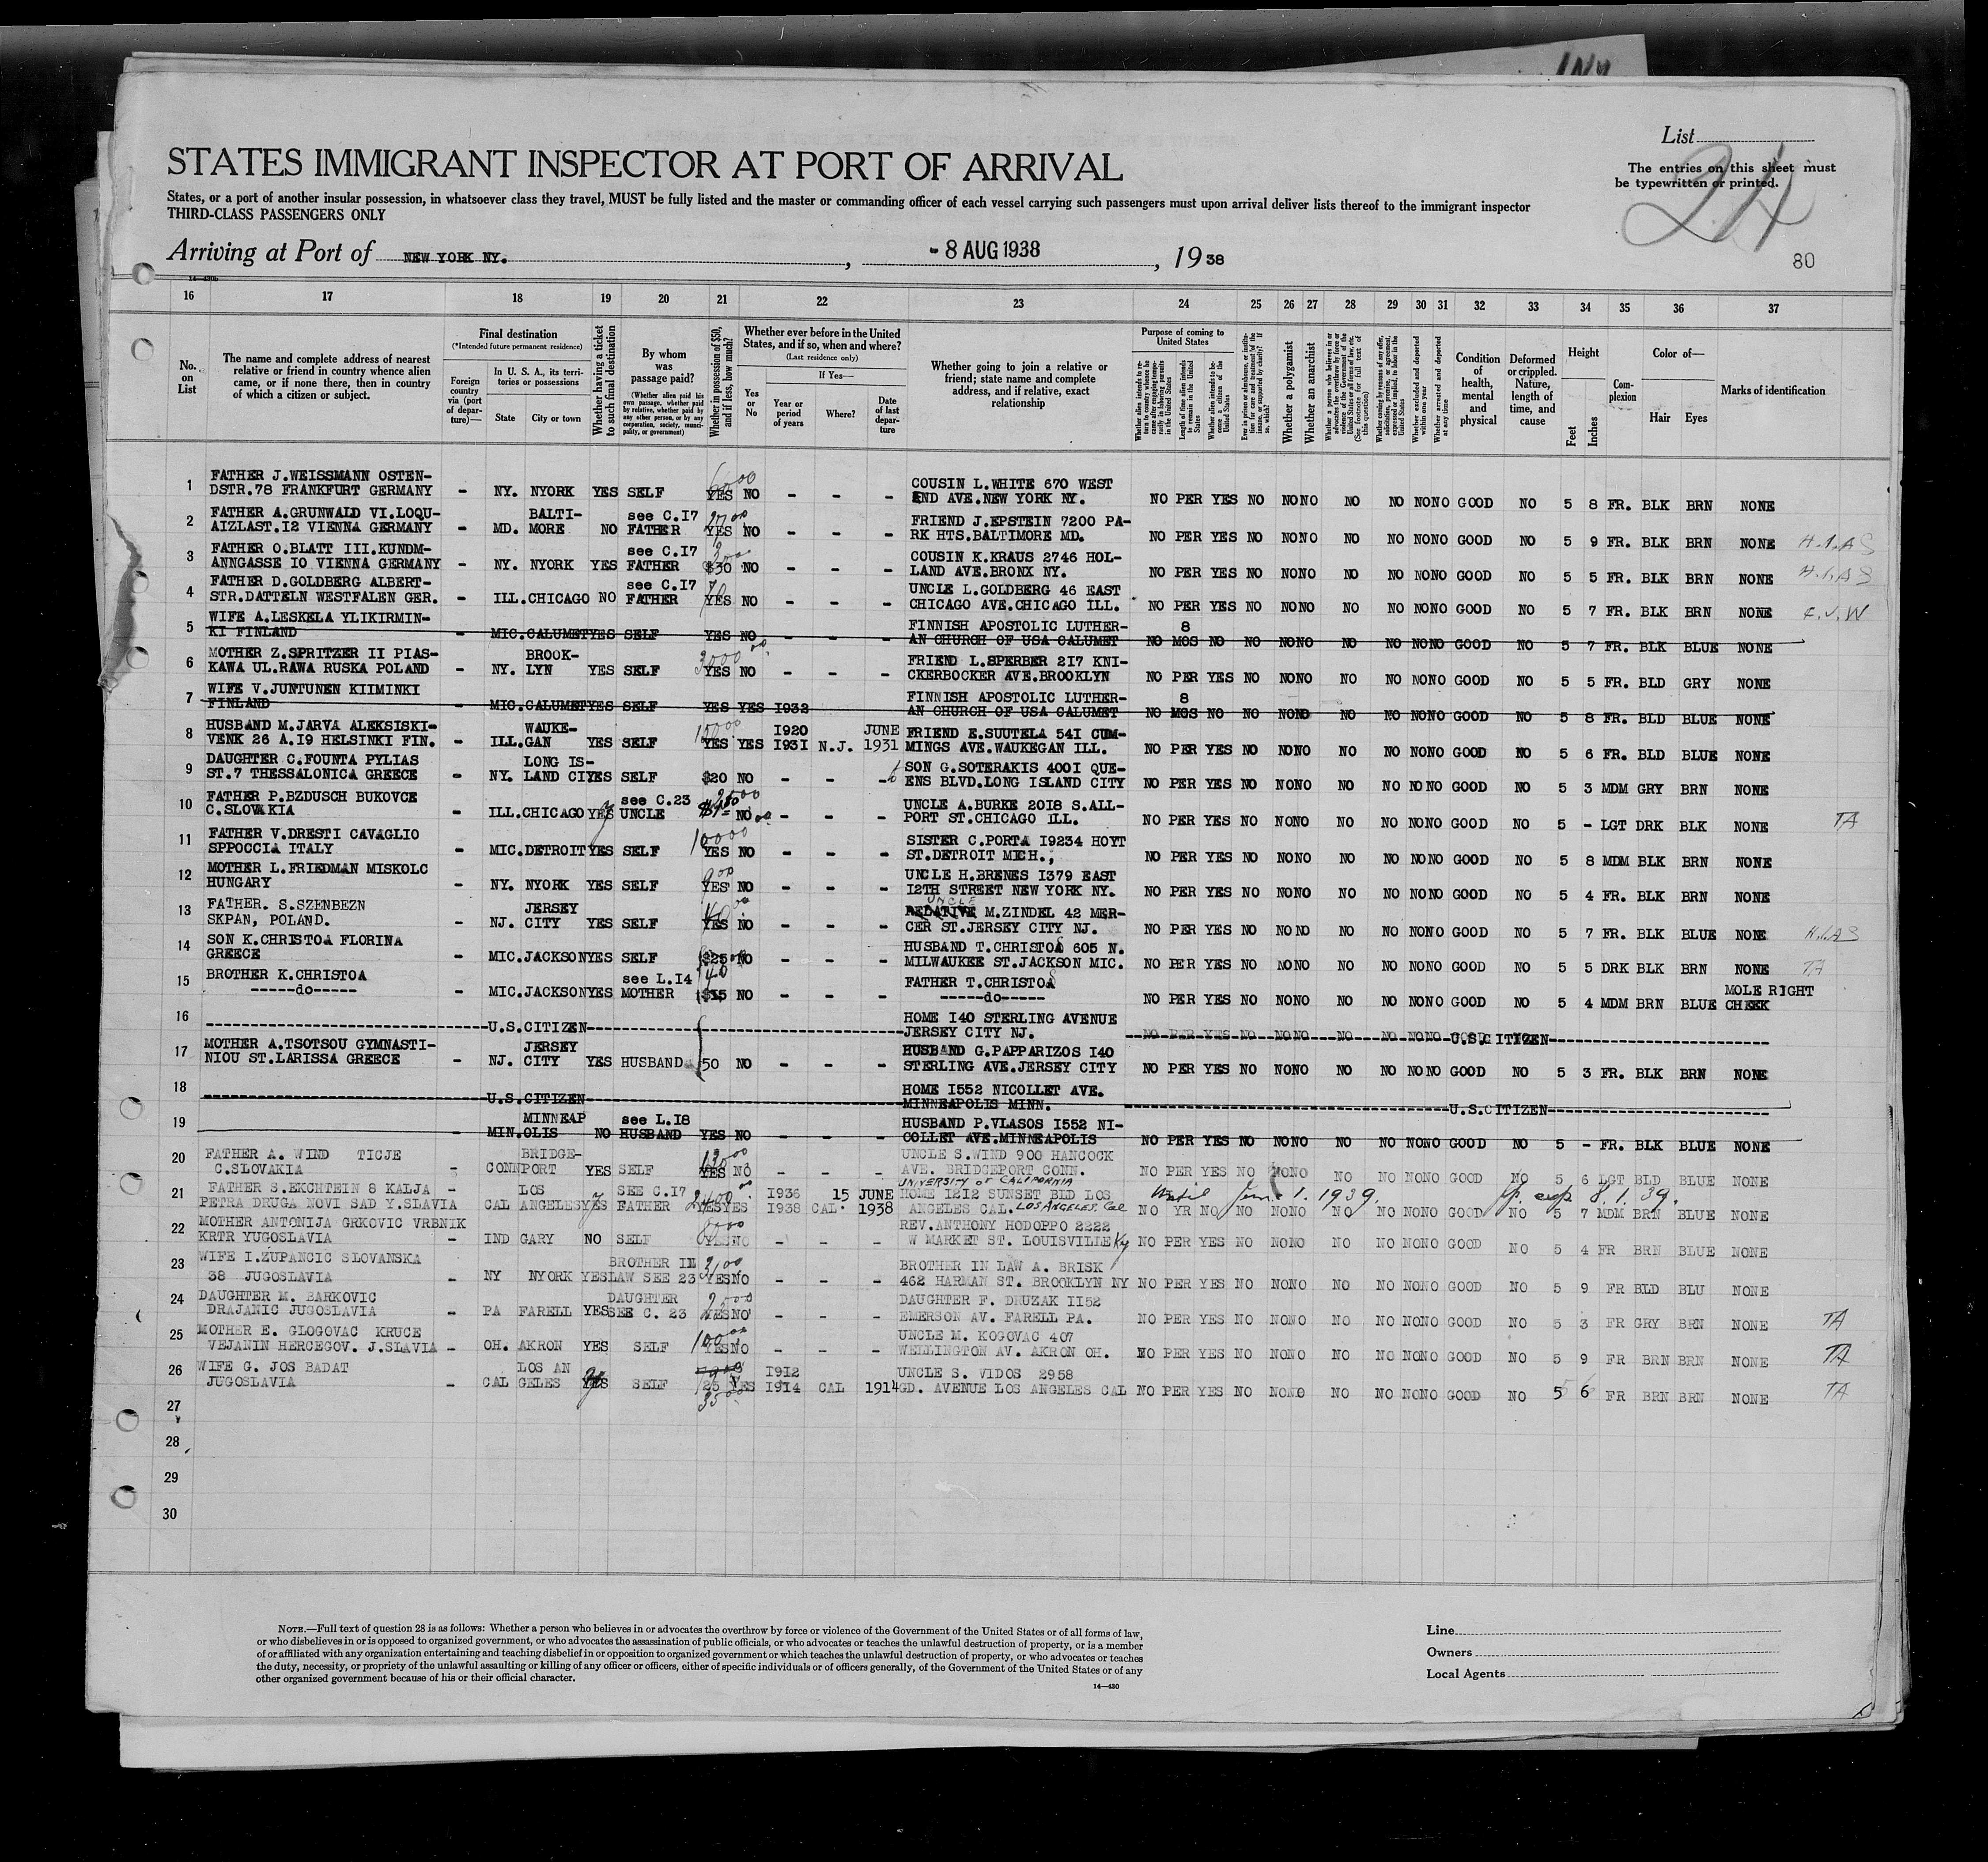 List
24
The entries on this sheet must
be typewritten or printed.
STATES IMMIGRANT INSPECTOR AT PORT OF ARRIVAL
States, or a port of another insular possession, in whatsoever class they travel, MUST be fully listed and the master or commanding officer of each vessel carrying such passengers must upon arrival deliver lists thereof to the immigrant inspector
THIRD-CLASS PASSENGERS ONLY
Arriving at Port of NEW YORK NY. , - 8 AUG 1938 , 19 38
80
16 17 18 19 20 21 22 23 24 25 26 27 28 29 30 31 32 33 34 35 36 37
No. on List
The name and complete address of nearest relative or friend in country whence alien came, or if none there, then in country of which a citizen or subject.
Final destination
(*Intended future permanent residence)
Foreign country via (port of departure)—
In U. S. A., its territories or possessions
State City or town
Whether having a ticket to such final destination
By whom was passage paid?
(Whether alien paid his own passage, whether paid by relative, whether paid by any other person, or by any corporation, society, municipality, or government)
Whether in possession of $50, and if less, how much?
Whether ever before in the United States, and if so, when and where?
(Last residence only)
Yes or No
If Yes—
Year or period of years
Where?
Date of last departure
Whether going to join a relative or friend; state name and complete address, and if relative, exact relationship
Purpose of coming to United States
Length of time alien intends to remain in the United States
Whether alien intends to become a citizen of the United States
Whether a polygamist
Whether an anarchist
Whether arrested and deported at any time
Condition of health, mental and physical
Deformed or crippled. Nature, length of time, and cause
Height
Feet Inches
Complexion
Color of—
Hair Eyes
Marks of identification
1 FATHER J.WEISSMANN OSTEN-
DSTR.78 FRANKFURT GERMANY - NY. NYORK YES SELF YES NO - - - COUSIN L.WHITE 670 WEST
END AVE.NEW YORK NY. NO PER YES NO NO NO NO NO NO NO GOOD NO 5 8 FR. BLK BRN NONE
2 FATHER A.GRUNWALD VI.LOQU-
AIZLAST.I2 VIENNA GERMANY - MD. BALTI-MORE NO see C.I7 FATHER YES NO - - - FRIEND J.EPSTEIN 7200 PA-
RK HTS.BALTIMORE MD. NO PER YES NO NO NO NO NO NO NO GOOD NO 5 9 FR. BLK BRN NONE H.I.A.S
3 FATHER O.BLATT III.KUNDM-
ANNGASSE IO VIENNA GERMANY - NY. NYORK YES see C.I7 FATHER $30 NO - - - COUSIN K.KRAUS 2746 HOL-
LAND AVE.BRONX NY. NO PER YES NO NO NO NO NO NO NO GOOD NO 5 5 FR. BLK BRN NONE H.I.A.S
4 FATHER D.GOLDBERG ALBERT-
STR.DATTELN WESTFALEN GER. - ILL.CHICAGO NO see C.I7 FATHER YES NO - - - UNCLE L.GOLDBERG 46 EAST
CHICAGO AVE.CHICAGO ILL. NO PER YES NO NO NO NO NO NO NO GOOD NO 5 7 FR. BLK BRN NONE
5 WIFE A.LESKELA YLIKIRMIN-
KI FINLAND - MIC.CALUMET YES SELF YES NO - - - FINNISH APOSTOLIC LUTHER-
AN CHURCH OF USA CALUMET NO 8 MOS NO NO NO NO NO NO NO NO GOOD NO 5 7 FR. BLK BLUE NONE
6 MOTHER Z.SPRITZER II PIAS-
KAWA UL.RAWA RUSKA POLAND - NY. BROOK-LYN YES SELF YES NO - - - FRIEND L.SPERBER 2I7 KNI-
CKERBOCKER AVE.BROOKLYN NO PER YES NO NO NO NO NO NO NO GOOD NO 5 5 FR. BLD GRY NONE
7 WIFE V.JUNTUNEN KIIMINKI
FINLAND - MIC.CALUMET YES SELF YES YES I932 FINNISH APOSTOLIC LUTHER-
AN CHURCH OF USA CALUMET NO 8 MOS NO NO NO NO NO NO NO NO GOOD NO 5 8 FR. BLD BLUE NONE
8 HUSBAND M.JARVA ALEKSISKI-
VENK 26 A.I9 HELSINKI FIN. - ILL. WAUKE-GAN YES SELF YES YES I920 I93I N.J. JUNE 1931 FRIEND E.SUUTELA 54I CUM-
MINGS AVE.WAUKEGAN ILL. NO PER YES NO NO NO NO NO NO NO GOOD NO 5 6 FR. BLD BLUE NONE
9 DAUGHTER C.FOUNTA PYLIAS
ST.7 THESSALONICA GREECE - NY. LONG IS-LAND CI YES SELF $20 NO - - - SON G.SOTERAKIS 400I QUE-
ENS BLVD.LONG ISLAND CITY NO PER YES NO NO NO NO NO NO NO GOOD NO 5 3 MDM GRY BRN NONE
10 FATHER P.BZDUSCH BUKOVCE
C.SLOVAKIA - ILL.CHICAGO YES see C.23 UNCLE NO - - - UNCLE A.BURKE 20I8 S.ALL-
PORT ST.CHICAGO ILL. NO PER YES NO NO NO NO NO NO NO GOOD NO 5 - LGT DRK BLK NONE TA
11 FATHER V.DRESTI CAVAGLIO
SPPOCCIA ITALY - MIC.DETROIT YES SELF YES NO - - - SISTER C.PORTA I9234 HOYT
ST.DETROIT MICH., NO PER YES NO NO NO NO NO NO NO GOOD NO 5 8 MDM BLK BRN NONE
12 MOTHER L.FRIEDMAN MISKOLC
HUNGARY - NY. NYORK YES SELF YES NO - - - UNCLE H.BRENES I379 EAST
I2TH STREET NEW YORK NY. NO PER YES NO NO NO NO NO NO NO GOOD NO 5 4 FR. BLK BRN NONE
13 FATHER. S.SZENBEZN
SKPAN, POLAND. - NJ. JERSEY CITY YES SELF YES NO - - - UNCLE RELATIVE M.ZINDEL 42 MER-
CER ST.JERSEY CITY NJ. NO PER YES NO NO NO NO NO NO NO GOOD NO 5 7 FR. BLK BLUE NONE H.I.A.S
14 SON K.CHRISTOA FLORINA
GREECE - MIC.JACKSON YES SELF $25 NO - - - HUSBAND T.CHRISTOS 605 N.
MILWAUKEE ST.JACKSON MIC. NO PER YES NO NO NO NO NO NO NO GOOD NO 5 5 DRK BLK BRN NONE TA
15 BROTHER K.CHRISTOA
-----do----- - MIC.JACKSON YES see L.I4 MOTHER $15 NO - - - FATHER T.CHRISTOS
-----do----- NO PER YES NO NO NO NO NO NO NO GOOD NO 5 4 MDM BRN BLUE MOLE RIGHT CHEEK
16 U.S.CITIZEN HOME I40 STERLING AVENUE
JERSEY CITY NJ. NO PER YES NO NO NO NO NO NO NO U.S.CITIZEN
17 MOTHER A.TSOTSOU GYMNASTI-
NIOU ST.LARISSA GREECE - NJ. JERSEY CITY YES HUSBAND 50 NO - - - HUSBAND G.PAPPARIZOS I40
STERLING AVE.JERSEY CITY NO PER YES NO NO NO NO NO NO NO GOOD NO 5 3 FR. BLK BRN NONE
18 U.S.CITIZEN HOME I552 NICOLLET AVE.
MINNEAPOLIS MINN. U.S.CITIZEN
19 - MIN. MINNEAP OLIS NO see L.I8 HUSBAND YES NO - - - HUSBAND P.VLASOS I552 NI-
COLLET AVE.MINNEAPOLIS NO PER YES NO NO NO NO NO NO NO GOOD NO 5 - FR. BLK BLUE NONE
20 FATHER A. WIND TICJE
C.SLOVAKIA - CONN BRIDGE-PORT YES SELF YES NO - - - UNCLE S.WIND 900 HANCOCK
AVE. BRIDGEPORT CONN. NO PER YES NO NO NO NO NO NO NO GOOD NO 5 6 LGT BLD BLUE NONE
UNIVERSITY OF CALIFORNIA
21 FATHER S.EKCHTEIN 8 KALJA -
PETRA DRUGA NOVI SAD Y.SLAVIA CAL LOS ANGELES YES SEE C.I7 FATHER YES YES I936 I938 CAL. 15 JUNE 1938 HOME I2I2 SUNSET BLD LOS
ANGELES CAL. LOS ANGELES. Cal NO YR NO NO NO NO NO NO NO NO GOOD NO 5 7 MDM BRN BLUE NONE
until June 1. 1939. pp. exp 8. 1. 39.
22 MOTHER ANTONIJA GRKOVIC VRBNIK
KRTR YUGOSLAVIA - IND GARY NO SELF YES NO - - - REV.ANTHONY HODOPPO 2222
W MARKET ST. LOUISVILLE Ky NO PER YES NO NO NO NO NO NO NO GOOD NO 5 4 FR BRN BLUE NONE
23 WIFE I.ZUPANCIC SLOVANSKA
38 JUGOSLAVIA - NY NYORK YES BROTHER IN LAW SEE 23 YES NO - - - BROTHER IN LAW A. BRISK
462 HARMAN ST. BROOKLYN NY NO PER YES NO NO NO NO NO NO NO GOOD NO 5 9 FR BLD BLU NONE
24 DAUGHTER M. BARKOVIC
DRAJANIC JUGOSLAVIA - PA FARELL YES DAUGHTER SEE C. 23 YES NO - - - DAUGHTER F. DRUZAK II52
EMERSON AV. FARELL PA. NO PER YES NO NO NO NO NO NO NO GOOD NO 5 3 FR GRY BRN NONE TA
25 MOTHER E. GLOGOVAC KRUCE
VEJANIN HERCEGOV. J.SLAVIA - OH. AKRON YES SELF YES NO - - - UNCLE M. KOGOVAC 407
WELLINGTON AV. AKRON OH. NO PER YES NO NO NO NO NO NO NO GOOD NO 5 9 FR BRN BRN NONE TA
26 WIFE G. JOS BADAT
JUGOSLAVIA - CAL LOS AN GELES YES SELF 25 YES I9I2 I9I4 CAL 1914 UNCLE S. VIDOS 2958
GD. AVENUE LOS ANGELES CAL NO PER YES NO NO NO NO NO NO NO GOOD NO 5 6 FR BRN BRN NONE TA
27
28
29
30
NOTE.—Full text of question 28 is as follows: Whether a person who believes in or advocates the overthrow by force or violence of the Government of the United States or of all forms of law,
or who disbelieves in or is opposed to organized government, or who advocates the assassination of public officials, or who advocates or teaches the unlawful destruction of property, or is a member
of or affiliated with any organization entertaining and teaching disbelief in or opposition to organized government or which teaches the unlawful destruction of property, or who advocates or teaches
the duty, necessity, or propriety of the unlawful assaulting or killing of any officer or officers, either of specific individuals or of officers generally, of the Government of the United States or of any
other organized government because of his or their official character.
14—430
Line
Owners
Local Agents